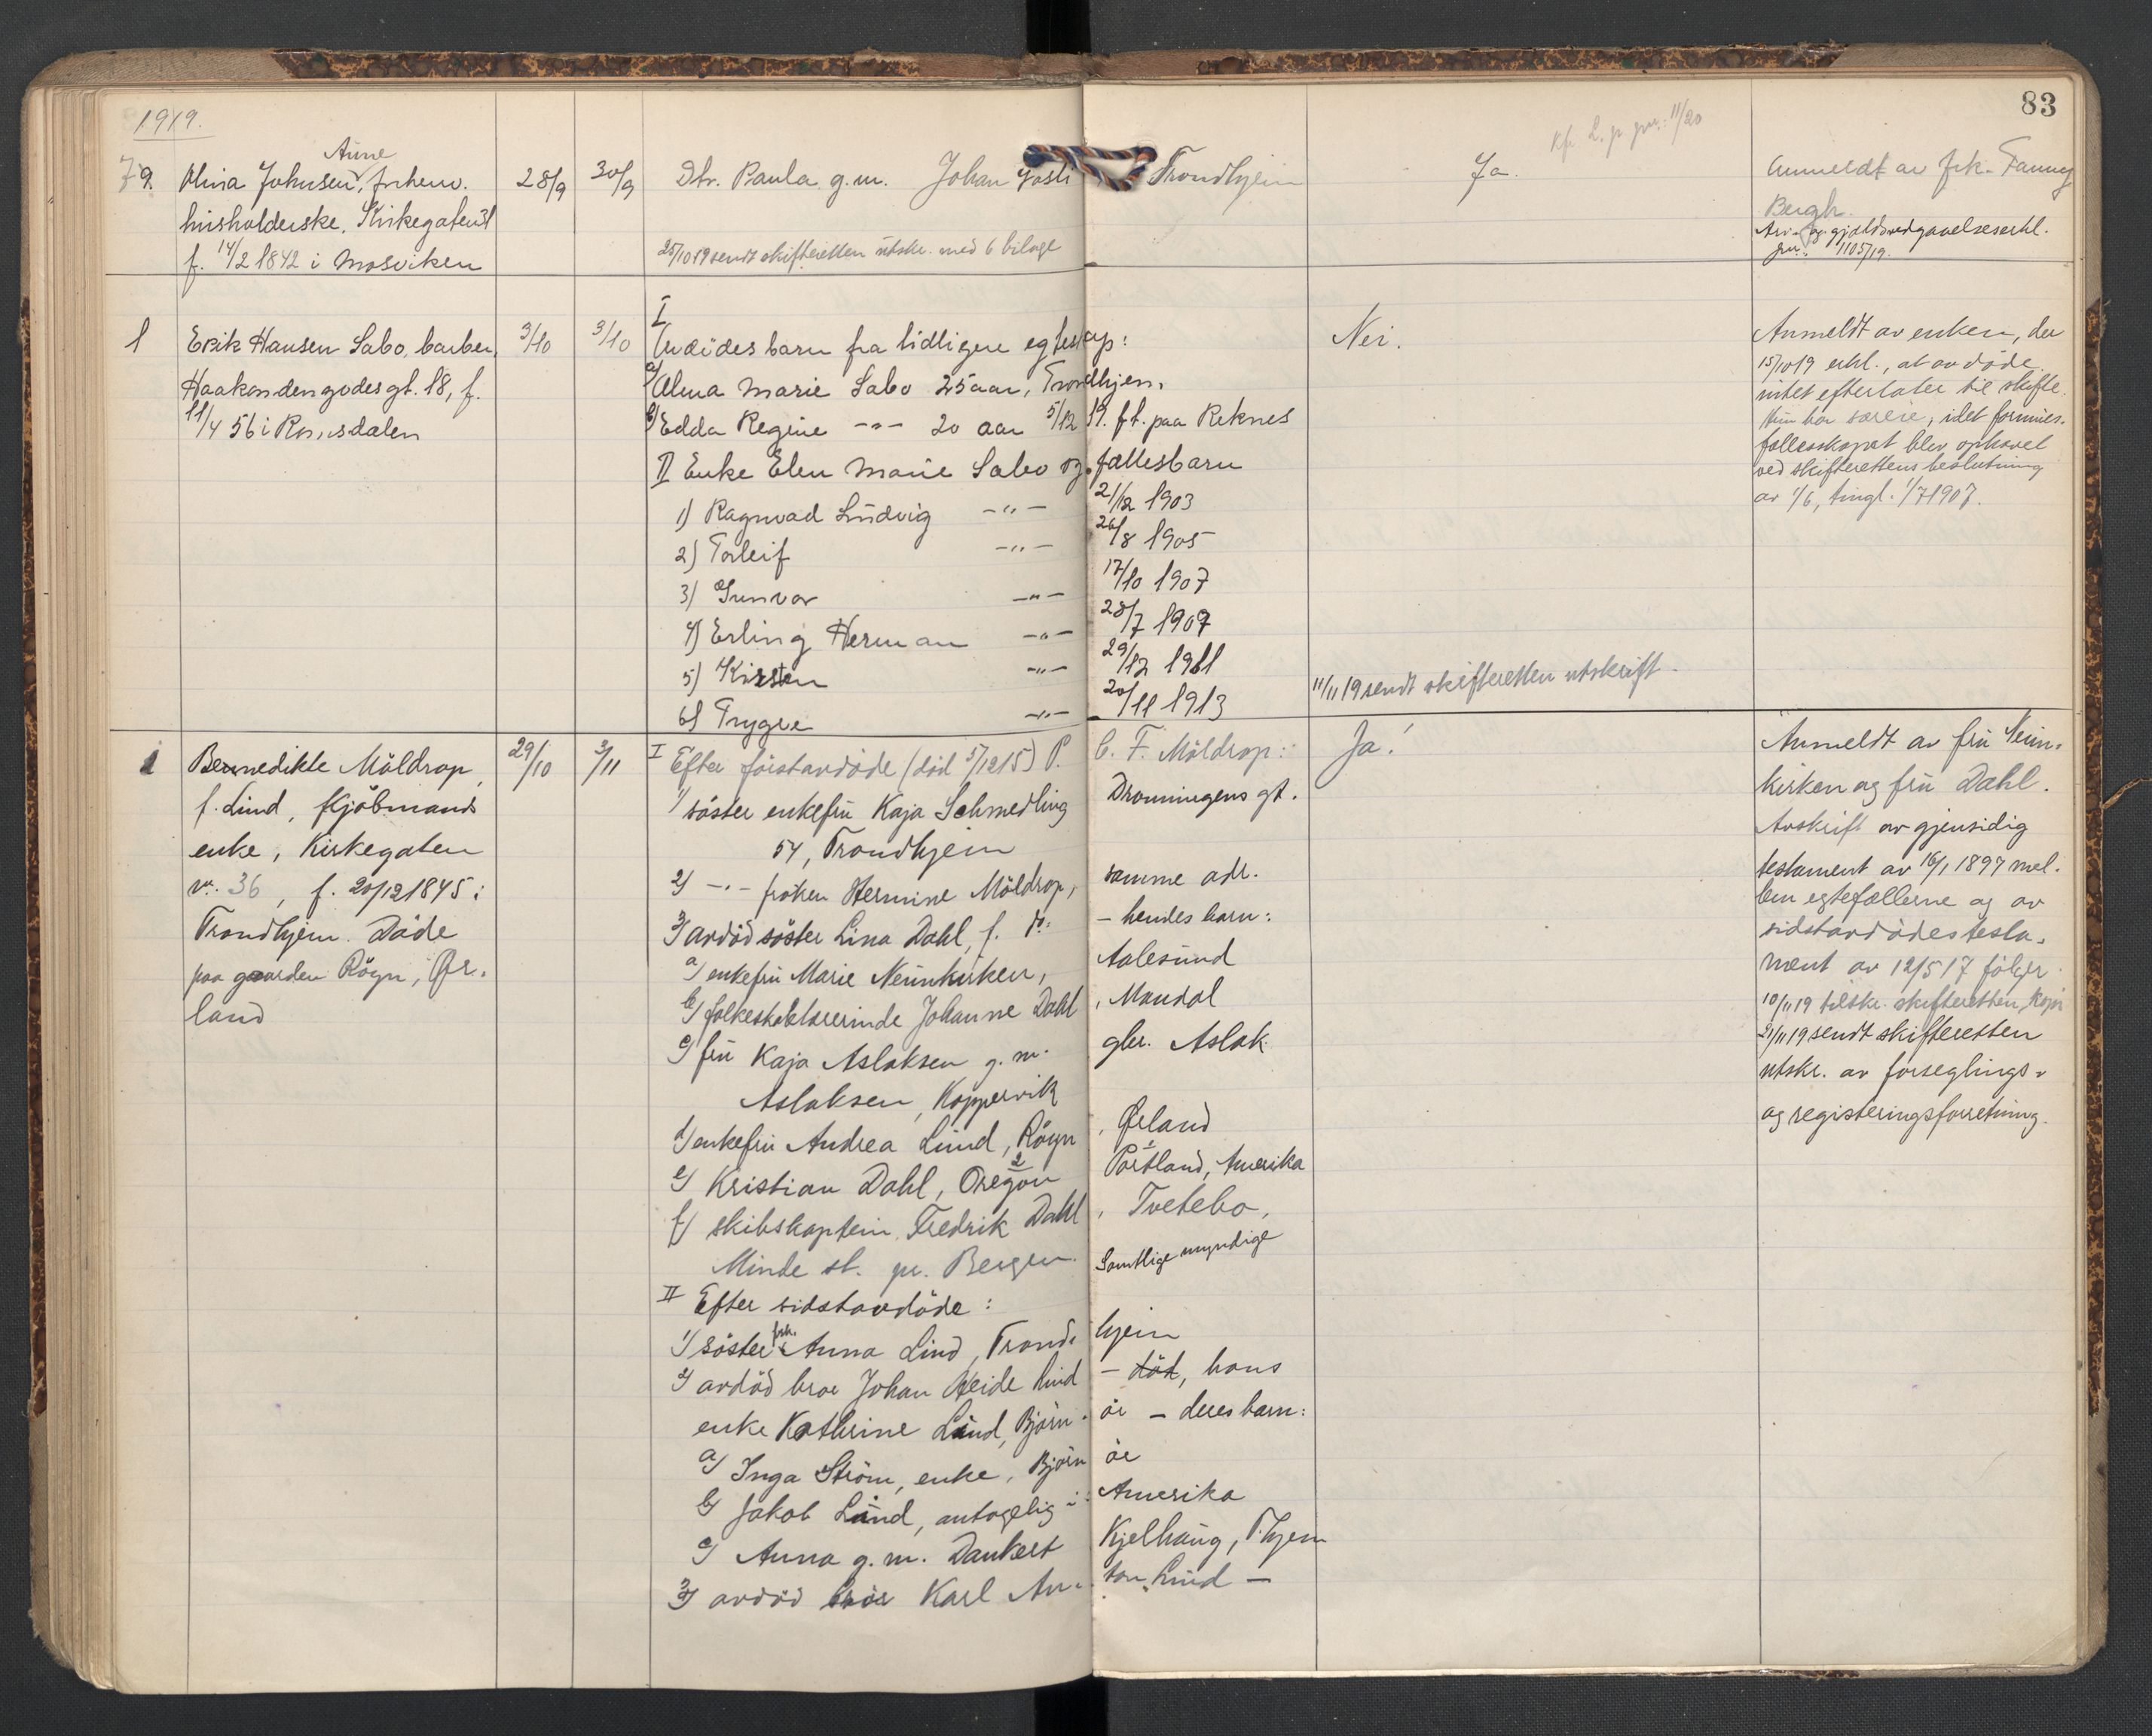 1919.
83
Kfr. L. p. 11/20
Aune
79. Olina Johnsen, frhenv.
husholderske, Kirkegaten 31
f. 14/2 1842 i Mosviken
28/9 30/9
Dtr. Paula g.m. Johan Trondhjem
25/10 19 sendt skifteretten utskr. med 6 bilage
Ja.
Anmeldt av frk. Fanny
Bergh.
Arv- og gjældsvedgaaelseserkl.
jnr. 1105/19.
1 Erik Hansen Sabo, barber,
Haakon den godes gt. 18, f.
11/4 56 i Romsdalen
3/10 3/10
I
Avdødes barn fra tidligere egteskap:
a) Alma Marie Sabo 25 aar, Trondhjem,
b) Edda Regine -"- 20 aar 5/12 19. f.t. paa Reknes
II Enke Elen Marie Sabo og fællesbarn
1) Ragnvad Ludvig -"- 21/12 1903
2) Torleif -"- 26/8 1905
3) Gunvor -"- 17/10 1907
4) Erling Herman -"- 28/7 1909
5) Kirsten -"- 29/12 1911
6) Trygve -"- 20/11 1913
Nei.
11/11 19 sendt skifteretten utskrift
Anmeldt av enken, der
15/10 19 erkl., at avdøde
intet efterlater til skifte.
Hun har særeie, idet formues-
fællesskapet blev ophævet
ved skifterettens beslutning
av 1/6, tingl. 1/7 1907.
1 Bennedikte Möldrop,
f. Lind, kjöbmands
enke, Kirkegaten
nr. 36, f. 20/12 1845 i
Trondhjem. Döde
paa gaarden Röyn, Ør-
land
29/10 3/11
I Efter förstavdöde (död 5/12 15) P. C. F. Möldrop:
1) söster enkefru Kaja Schmedling Dronningens gt.
54, Trondhjem
2) -"- fröken Hermine Möldrop, samme adr.
3) avdöd söster Lina Dahl, f. do: - hendes barn:
a) enkefru Marie Neumkirken, Aalesund
b) folkeskolelærerinde Johanne Dahl, Mandal
c) fru Kaja Aslaksen g.m. gbr. Aslak
Aslaksen, Koppervik
d) enkefru Andrea Lund, Röyn, Ørland
e) Kristian Dahl, Oregon Portland, Amerika
f) skibskaptein Fredrik Dahl, Tvetebo,
Minde st. pr. Bergen. Samtlige myndige
II Efter sidstavdöde:
1) söster frk. Anna Lind, Trondhjem
2) avdöd bror Johan Heide Lind - död, hans
enke Kathrine Lind, Björnör - deres barn:
a) Inga Ström, enke, Björnör
b) Jakob Lind, antagelig i Amerika
c) Anna g.m. Dankert Kjelhaug, T.hjem
3) avdöd bror Karl Anton Lind -
Ja!
Anmeldt av fru Neum-
kirken og fru Dahl.
Avskrift av gjensidig
testament av 16/1 1897 mel-
lem egtefællerne og av
sidstavdödes testa-
ment av 12/5 17 fölger
10/11 19 tilskr. skifteretten, kopi
21/11 19 sendt skifteretten
utskr. av forseglings-
og registeringsforretning.